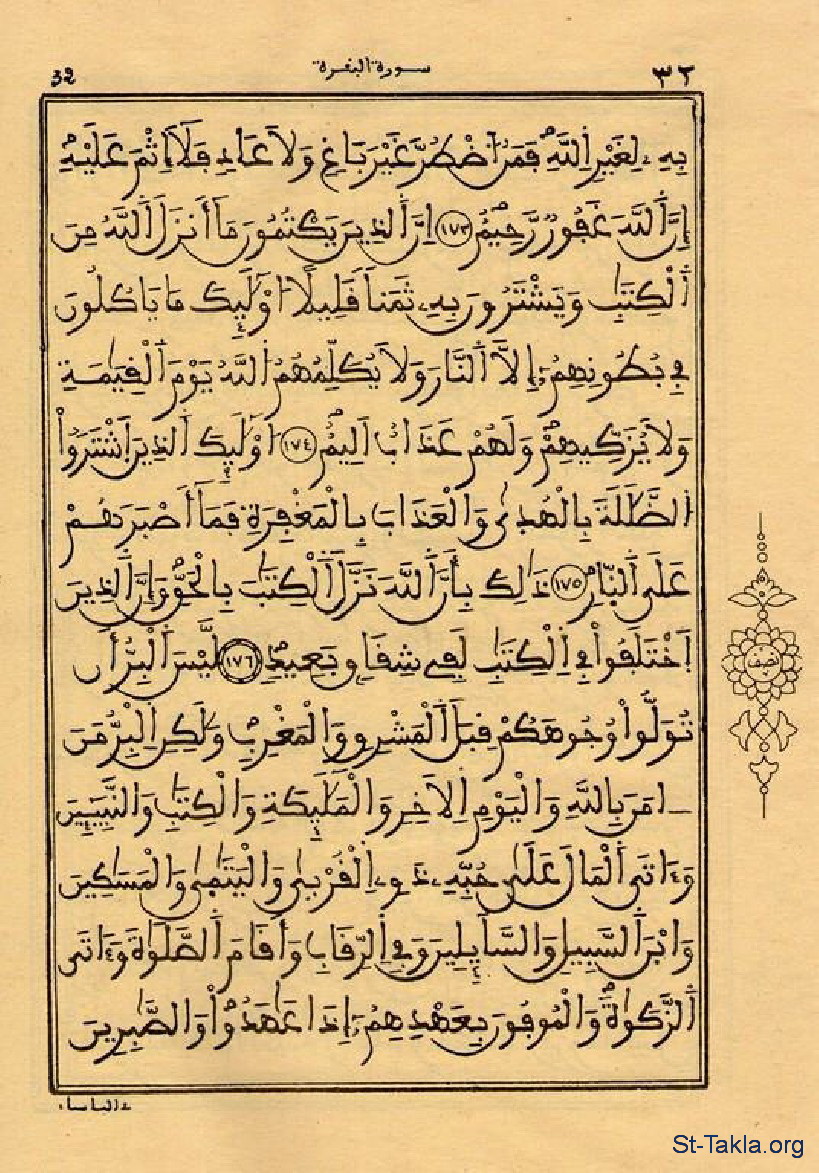 32 سورة البقرة ٣٢
بِهِۦ لِغَيْرِ اِللَّهِ فَمَنُ اضْطُرَّ غَيْرَ بَاغٍ وَلَا عَادٍ فَلَآ إِثْمَ عَلَيْهِ
إِنَّ اَللَّهَ غَفُورٌ رَّحِيمٌ ١٧٣ إِنَّ اَلذِينَ يَكْتُمُونَ مَآ أَنزَلَ اَللَّهُ مِنَ
اَلْكِتَٰبِ وَيَشْتَرُونَ بِهِۦ ثَمَناً قَلِيلًا اوْلَٰٓئِكَ مَا يَاكُلُونَ
فِي بُطُونِهِمُۥٓ إِلَّا اَلنَّارَ وَلَا يُكَلِّمُهُمُ اُللَّهُ يَوْمَ اَلْقِيَٰمَةِ
وَلَا يُزَكِّيهِمْ وَلَهُمْ عَذَابٌ اَلِيمٌ ١٧٤ اوْلَٰٓئِكَ اَلذِينَ اَشْتَرَوُاْ
اُلضَّلَٰلَةَ بِالْهُدىٰ وَالْعَذَابَ بِالْمَغْفِرَةِ فَمَآ أَصْبَرَهُمْ
عَلَى اَلنّ۪ارِ ١٧٥ ذَٰلِكَ بِأَنَّ اَللَّهَ نَزَّلَ اَلْكِتَٰبَ بِالْحَقِّ وَإِنَّ اَلذِينَ
اَخْتَلَفُواْ فِي اِلْكِتَٰبِ لَفِي شِقَاقٍ بَعِيدٍ ١٧٦ لَّيْسَ اَلْبِرُّ أَن
تُوَلُّواْ وُجُوهَكُمْ قِبَلَ اَلْمَشْرِقِ وَالْمَغْرِبِ وَلَٰكِنِ اِلْبِرُّ مَنَ
ـ امَنَ بِاللَّهِ وَالْيَوْمِ اِلَاخِرِ وَالْمَلَٰٓئِكَةِ وَالْكِتَٰبِ وَالنَّبِيٓـِٕينَ
وَءَاتَى اَلْمَالَ عَلَىٰ حُبِّهِۦ ذَوِي اِلْقُرْبىٰ وَالْيَتَٰمىٰ وَالْمَسَٰكِينَ
وَابْنَ اَلسَّبِيلِ وَالسَّآئِلِينَ وَفِي اِلرِّقَابِ وَأَقَامَ اَلصَّلَوٰةَ وَءَاتَى
اَلزَّكَوٰةَ وَالْمُوفُونَ بِعَهْدِهِمُۥٓ إِذَا عَٰهَدُواْ وَالصَّٰبِرِينَ
نصف
في الباساء
St-Takla.org